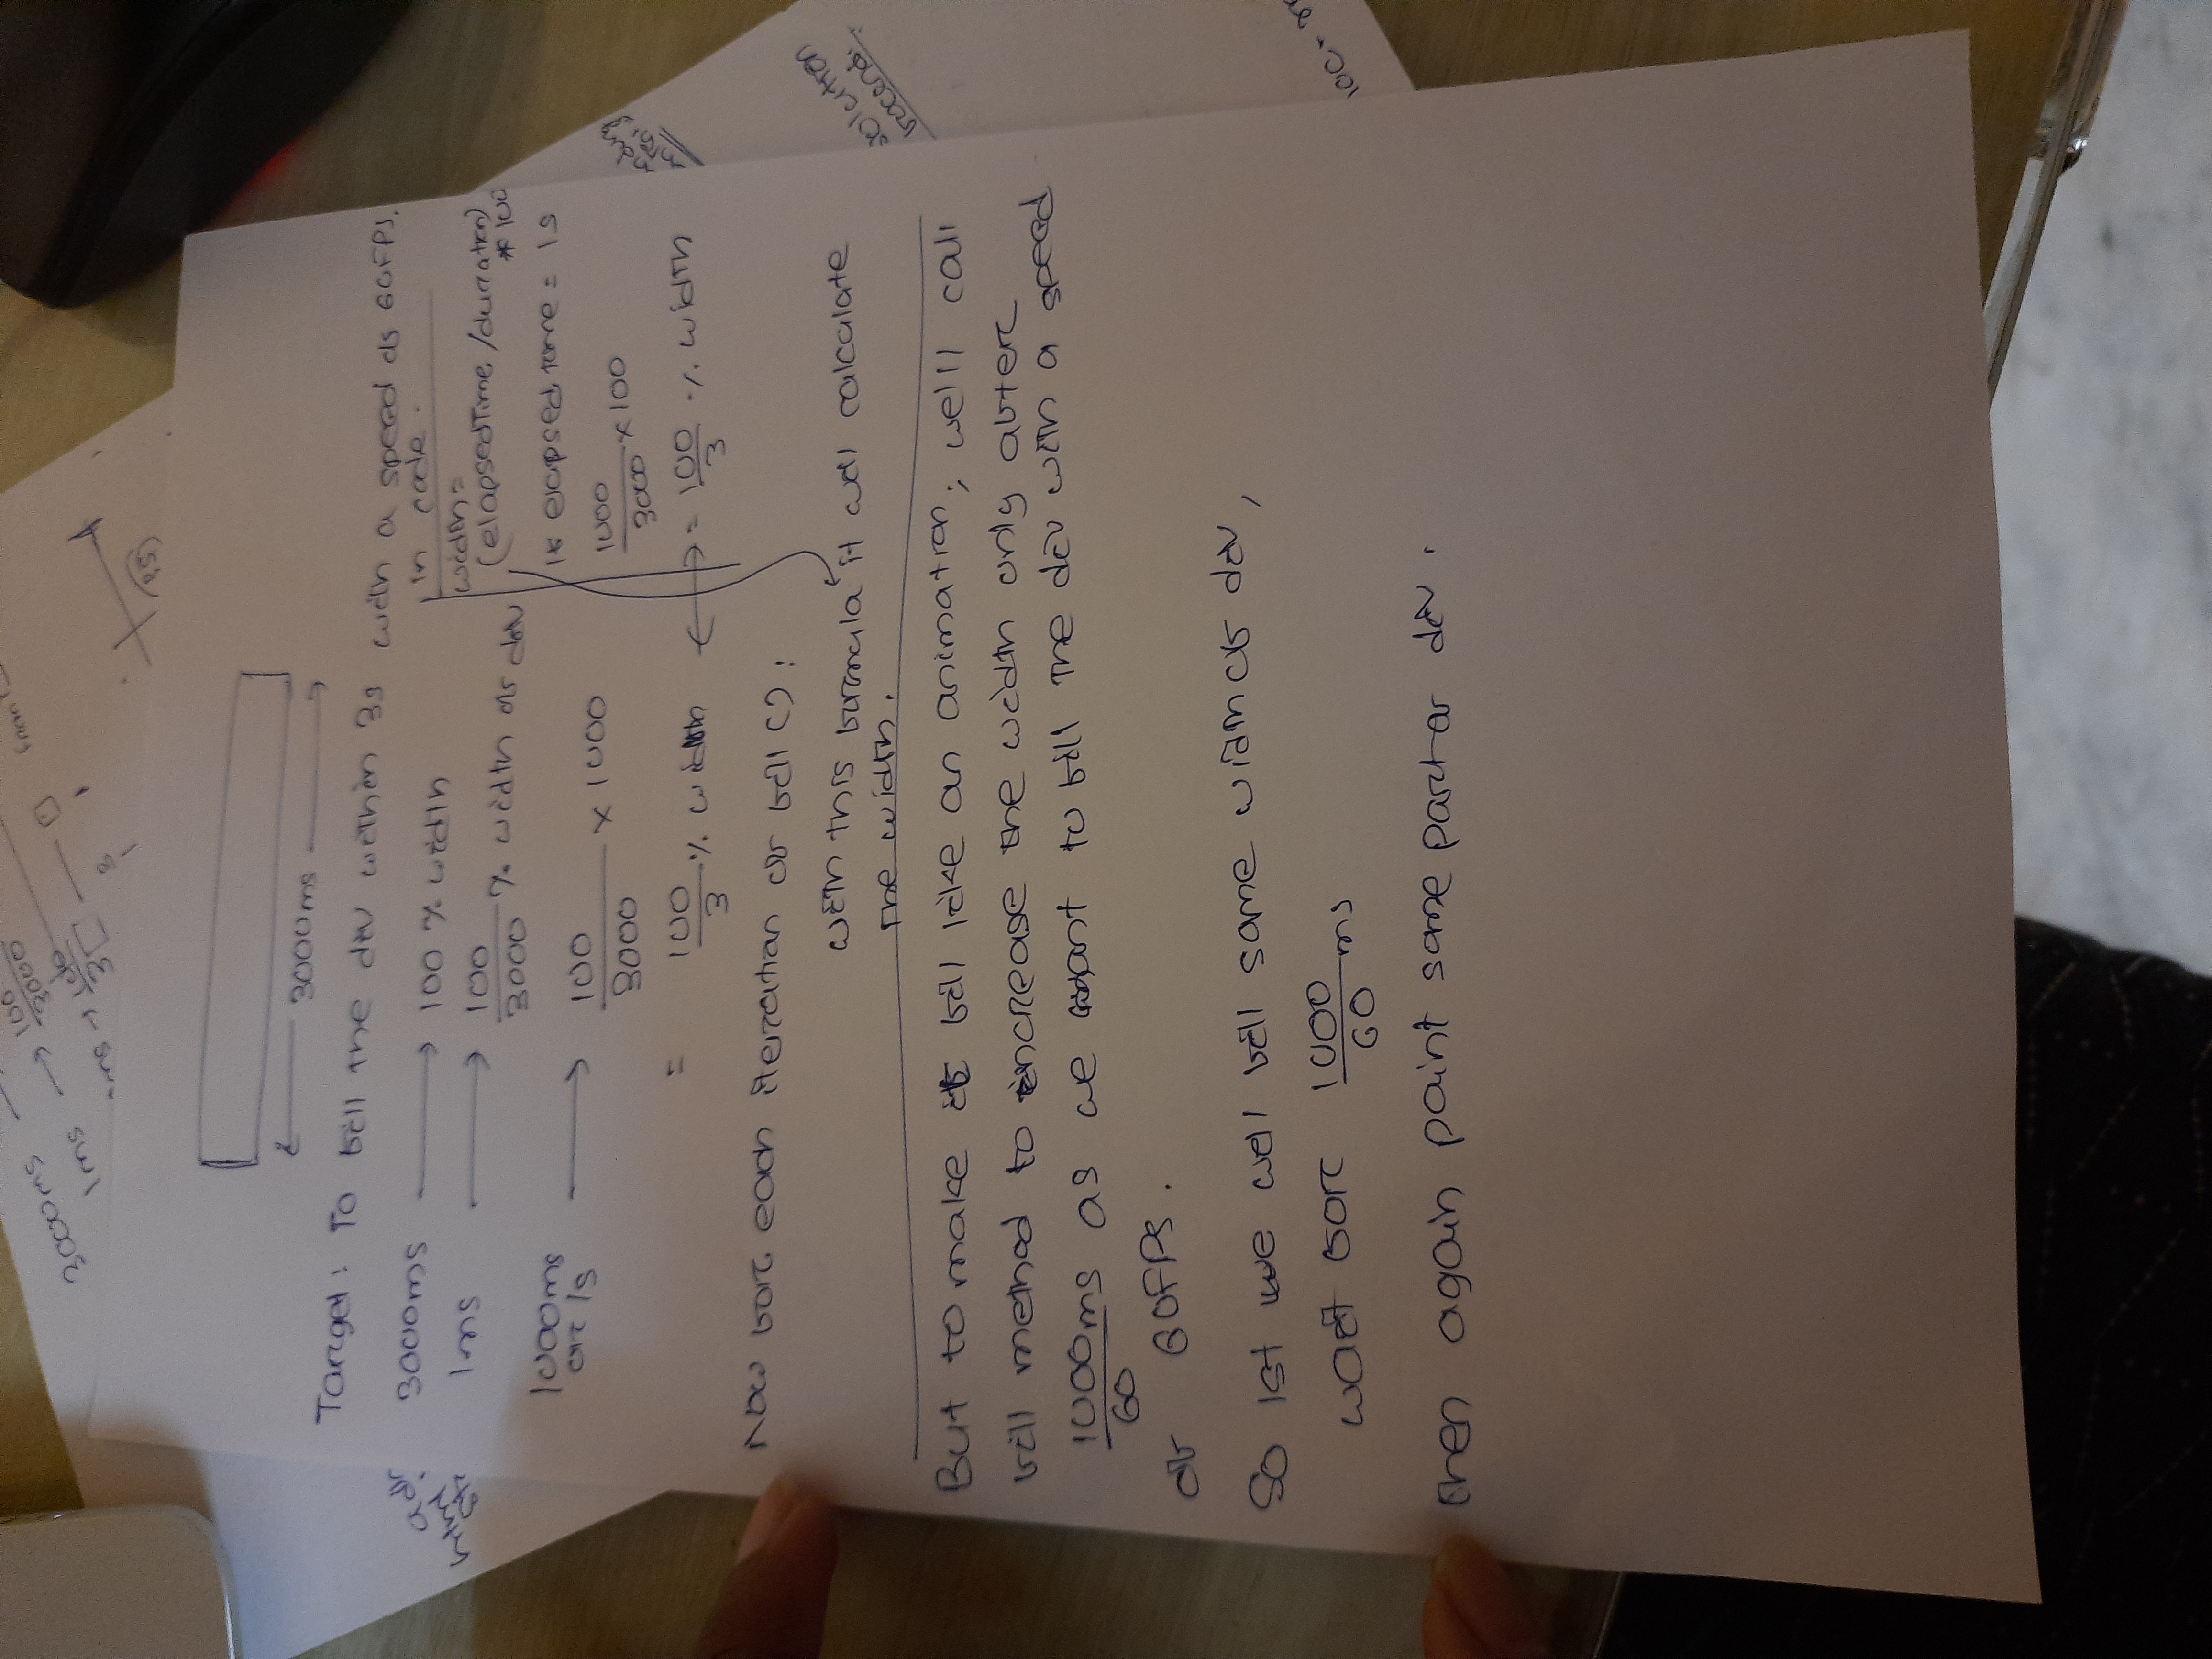 3000ms
1ms → 100/3000
100
3
3000ms
Target: To fill the div within 3s with a speed of 60FPS.
3000ms → 100 % width
1ms → 100/3000 % width of div
1000ms or 1s → 100/3000 x 1000
= 100/3 % width
in code.
width =
(elapsedTime/duration)
* 100
if elapsed time = 1s
1000/3000 x 100
= 100/3 % width
Now for each iteration of fill():
with this formula it will calculate
the width.
But to make it fill like an animation, we'll call
fill method to increase the width only after
1000/60 ms as we want to fill the div with a speed
of 60FPS.
So 1st we will fill some width of div,
wait for 1000/60 ms
then again paint some part of div.
solution